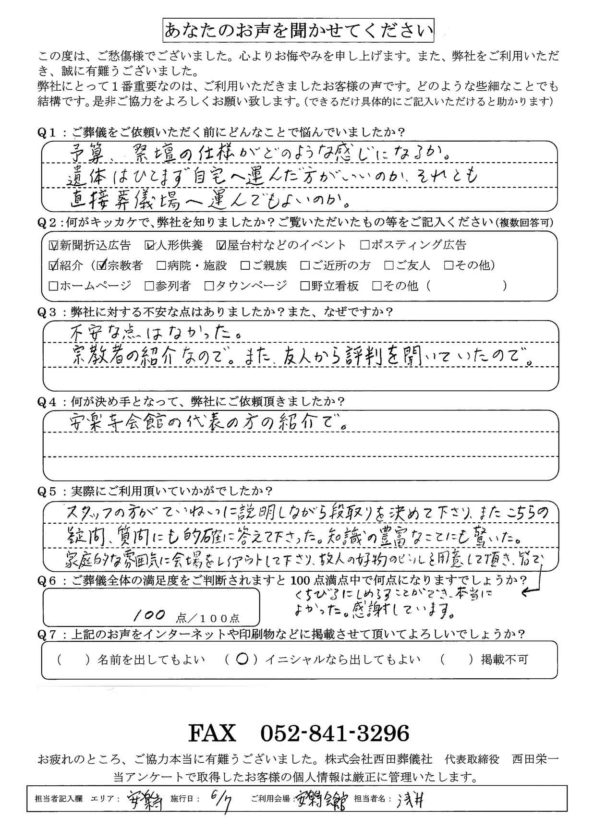 あなたのお声を聞かせてください
この度は、ご愁傷様でございました。心よりお悔やみを申し上げます。また、弊社をご利用いただ
き、誠に有難うございました。
弊社にとって１番重要なのは、ご利用いただきましたお客様の声です。どのような些細なことでも
結構です。是非ご協力をよろしくお願い致します。（できるだけ具体的にご記入いただけると助かります）
Q1：ご葬儀をご依頼いただく前にどんなことで悩んでいましたか？
予算、祭壇の仕様がどのような感じになるか。
遺体はひとまず自宅へ運んだ方がいいのか、それとも
直接葬儀場へ運んでもよいのか。
Q2：何がキッカケで、弊社を知りましたか？ご覧いただいたもの等をご記入ください（複数回答可）
☑新聞折込広告 ☑人形供養 ☑屋台村などのイベント □ポスティング広告
☑紹介（☑宗教者 □病院・施設 □ご親族 □ご近所の方 □ご友人 □その他）
□ホームページ □参列者 □タウンページ □野立看板 □その他（ ）
Q3：弊社に対する不安な点はありましたか？また、なぜですか？
不安な点はなかった。
宗教者の紹介なので。また、友人から評判を聞いていたので。
Q4：何が決め手となって、弊社にご依頼頂きましたか？
安楽寺会館の代表の方の紹介で。
Q5：実際にご利用頂いていかがでしたか？
スタッフの方がていねいに説明しながら段取りを決めて下さり、またこちらの
疑問、質問にも的確に答えて下さった。知識の豊富なことにも驚いた。
家庭的な雰囲気に会場をレイアウトして下さり、故人の好物のビールを用意して頂き、皆で
くちびるにしめらすことができ、本当に
よかった。感謝しています。
Q6：ご葬儀全体の満足度をご判断されますと100点満点中で何点になりますでしょうか？
100 点／100点
Q7：上記のお声をインターネットや印刷物などに掲載させて頂いてよろしいでしょうか？
（ ）名前を出してもよい （○）イニシャルなら出してもよい （ ）掲載不可
FAX 052-841-3296
お疲れのところ、ご協力本当に有難うございました。株式会社西田葬儀社 代表取締役 西田栄一
当アンケートで取得したお客様の個人情報は厳正に管理いたします。
担当者記入欄 エリア：安楽寺 施行日：6/7 ご利用会場：安楽寺会館 担当者名：浅井